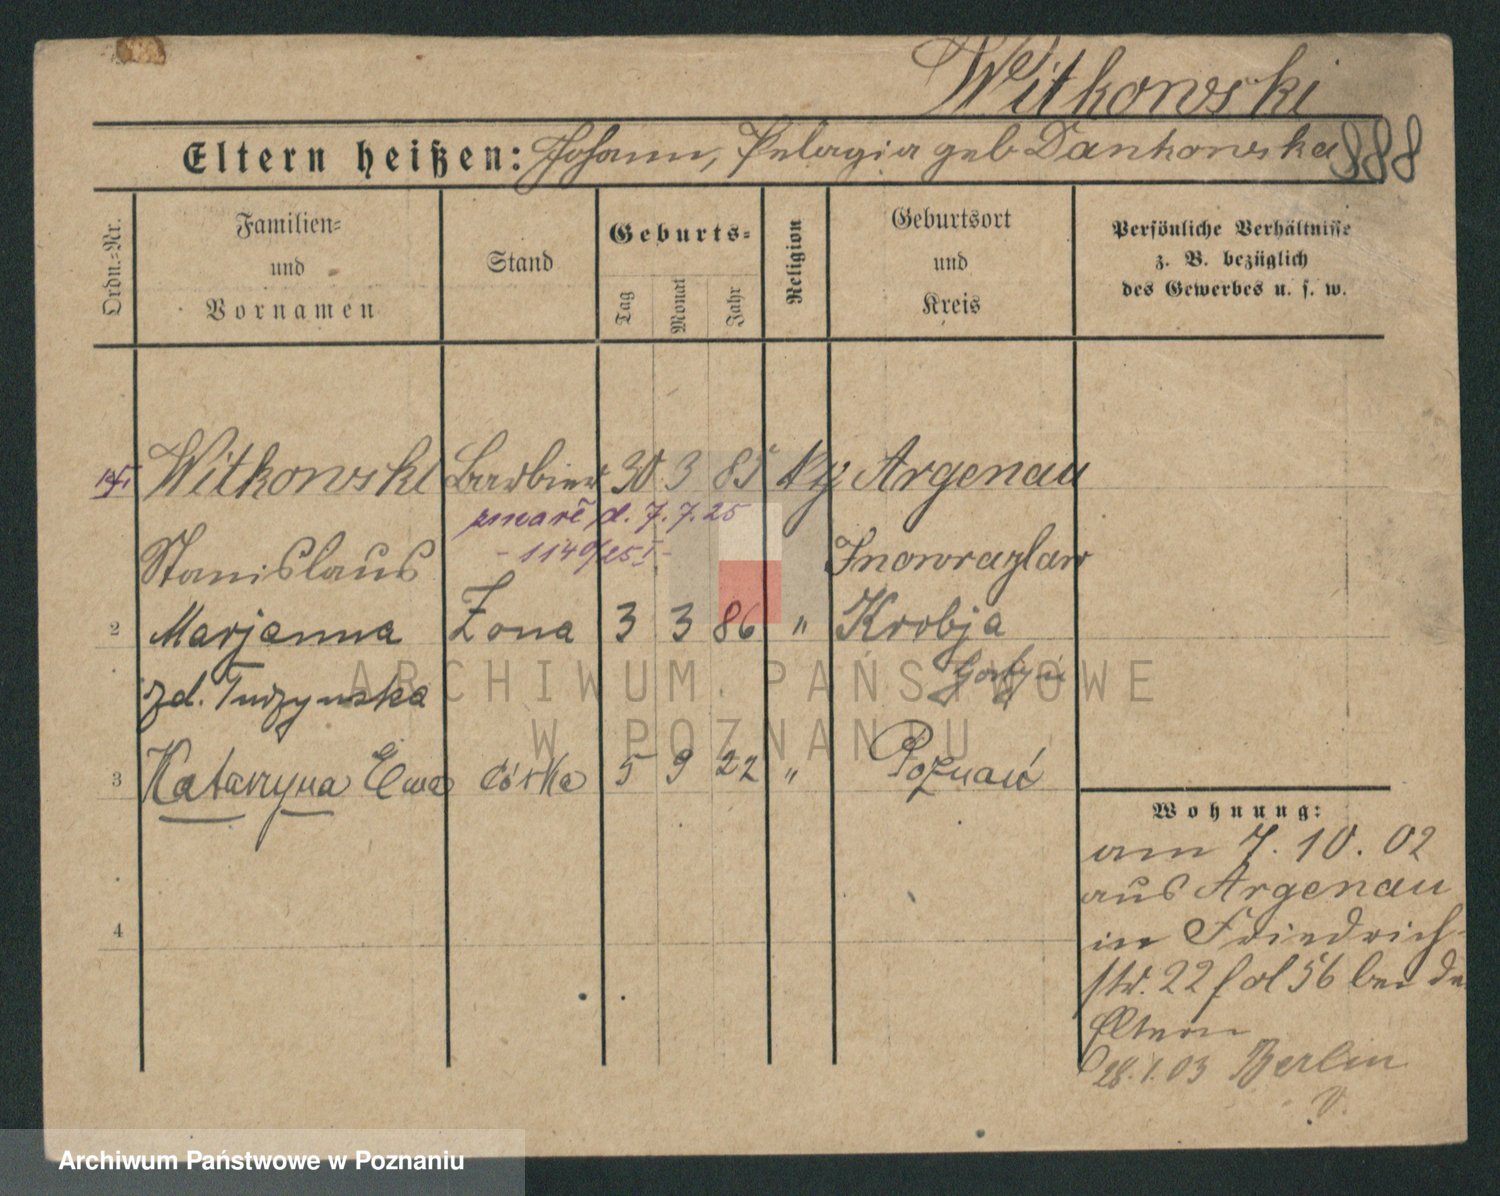 Witkowski
Eltern heißen: Johann, Pelagia geb Dankowska 888
Ordn.-Nr.
Familien-
und
Vornamen
Stand
Geburts-
Tag
Monat
Jahr
Religion
Geburtsort
und
Kreis
Persönliche Verhältnisse
z. B. bezüglich
des Gewerbes u. s. w.
Witkowski Barbier 30 3 85 Argenau
zmarł d. 7.7.25
Stanislaus Inowrazlaw
2 Marjanna Żona 3 3 86 " Krobja
Gostyń
zd. Tuszynska
3 Katarzyna Ewa córka 5 9 22 " Poznań
4
Wohnung:
am 7. 10. 02
aus Argenau
in Friedrich-
str. 22 fol 56 bei de
Eltern
28.1.03 Berlin
ARCHIWUM PAŃSTWOWE
W POZNANIU
Archiwum Państwowe w Poznaniu